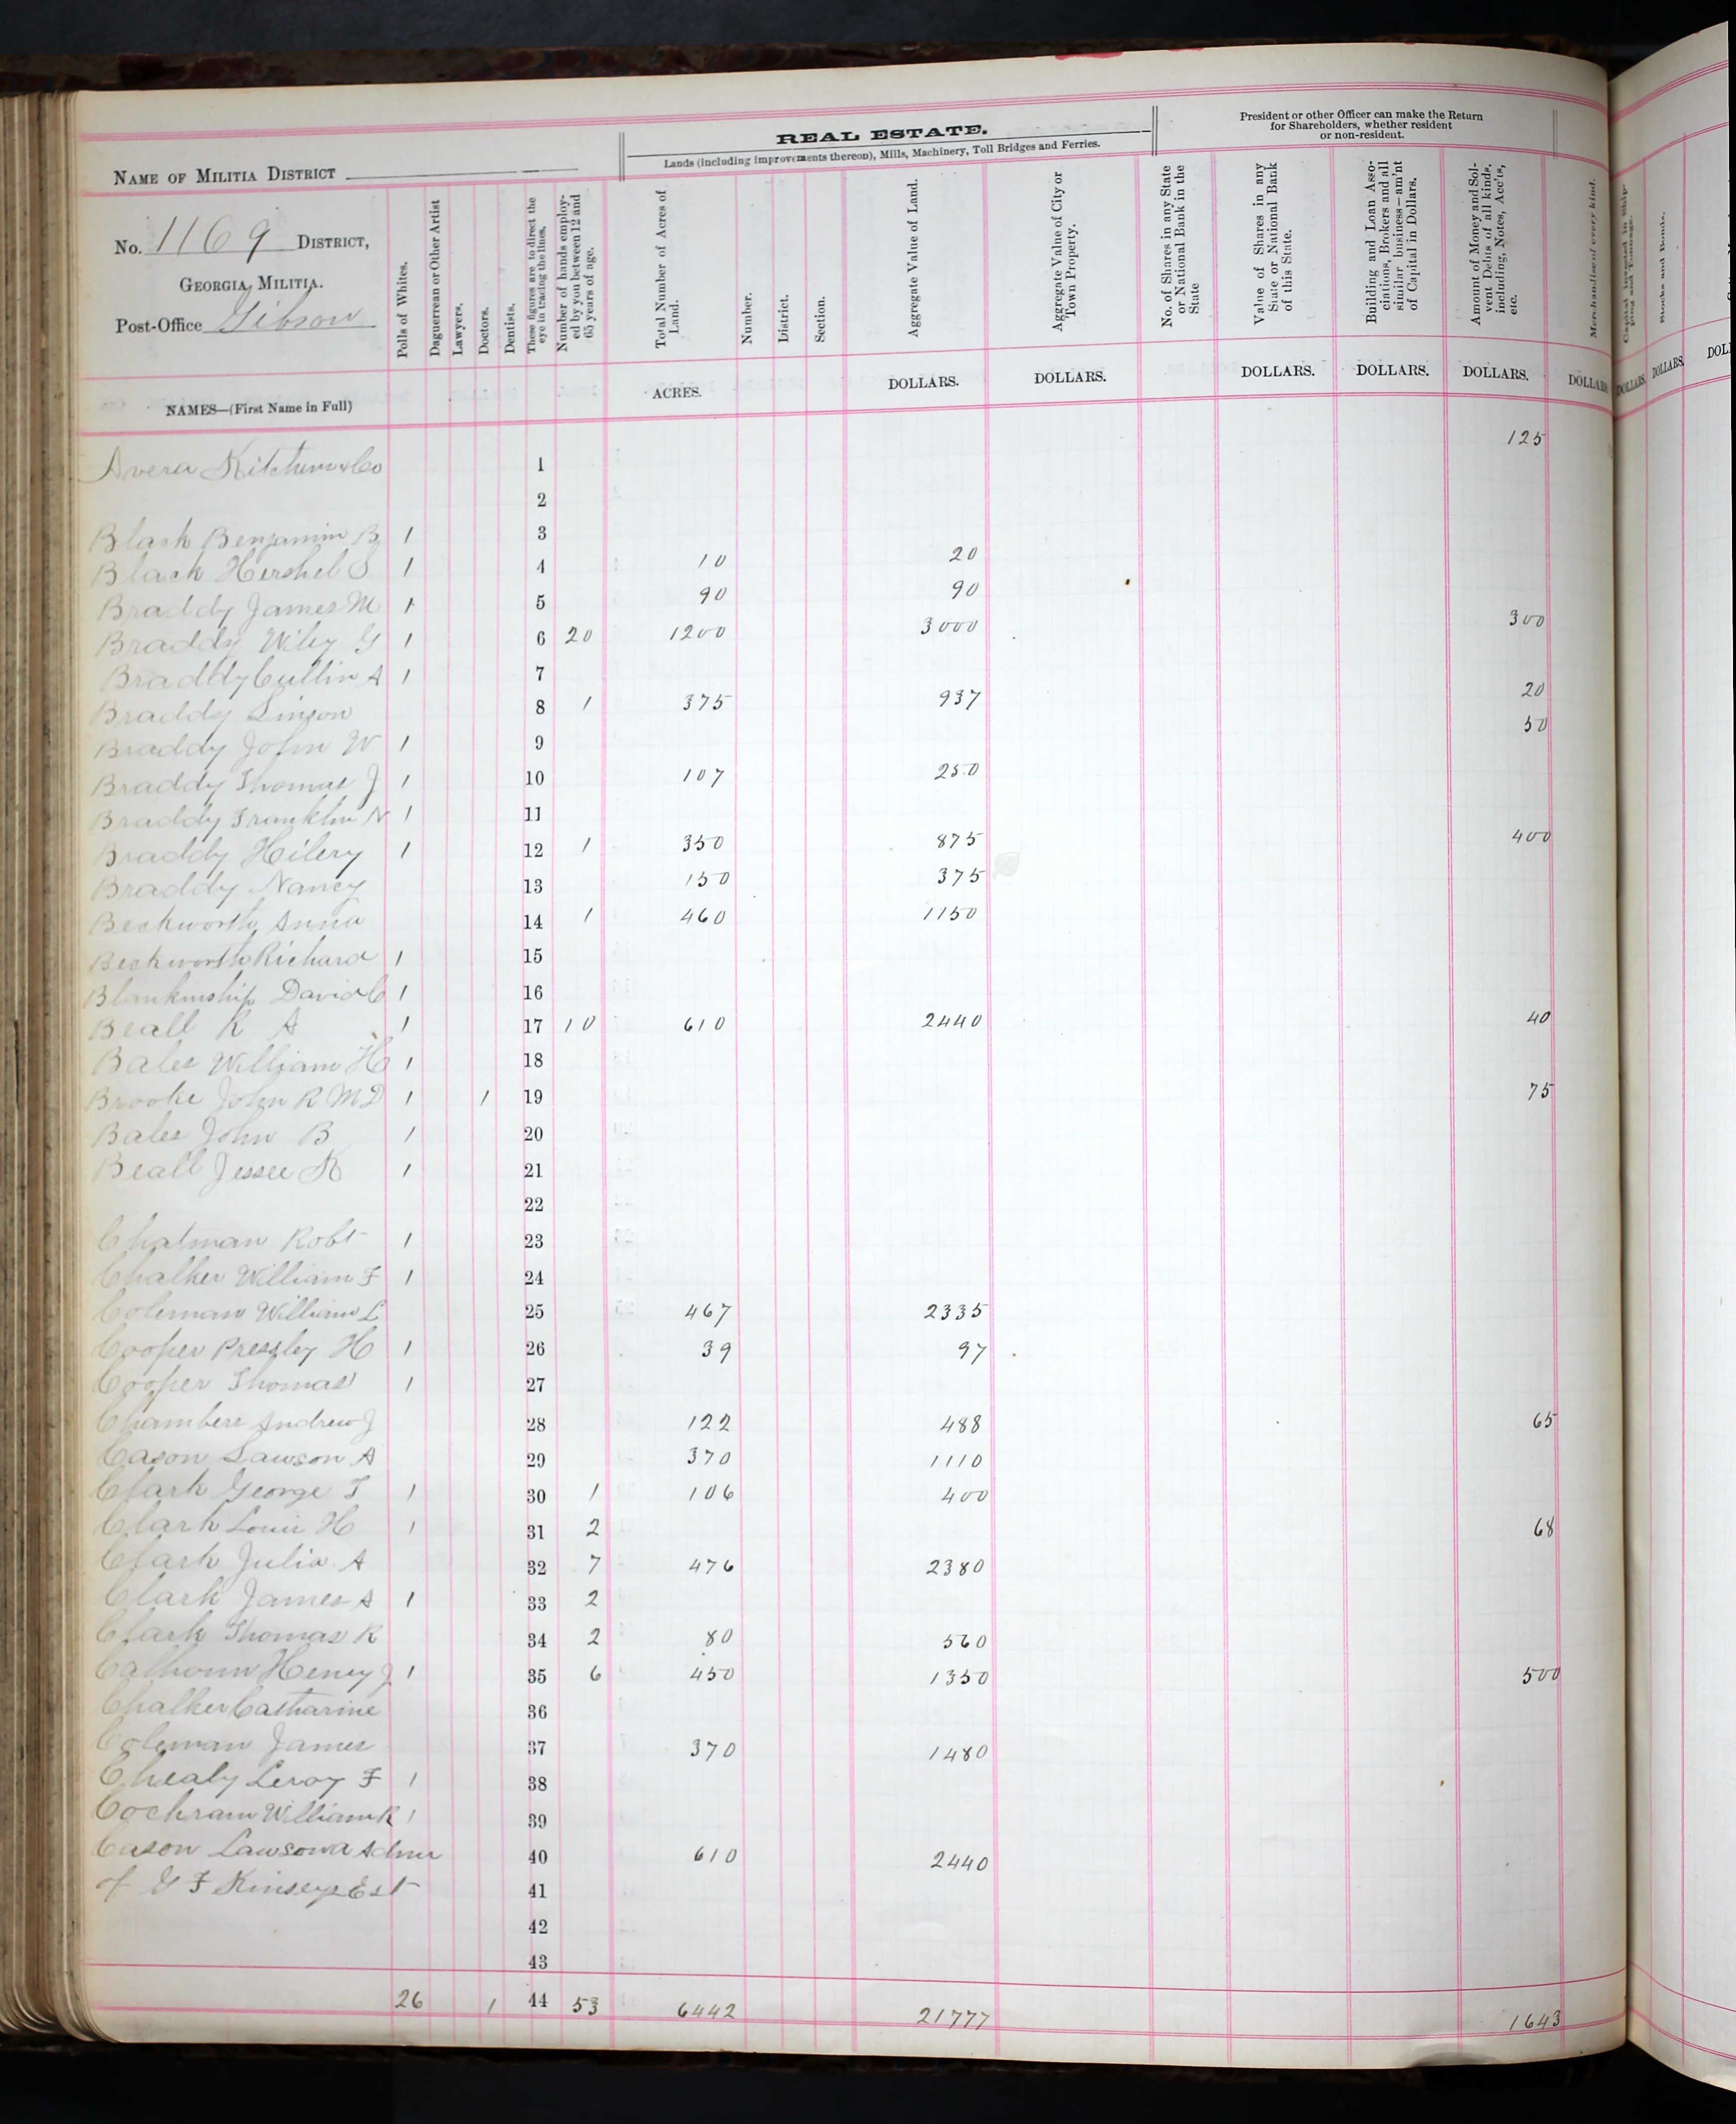 NAME OF MILITIA DISTRICT
No. 1169 DISTRICT,
GEORGIA MILITIA.
Post-Office Gibson
NAMES—(First Name in Full)
Polls of Whites.
Daguerrean or Other Artist
Lawyers.
Doctors.
Dentists.
These figures are to direct the eye in tracing the lines.
Number of hands employed by you between 12 and 65 years of age.
REAL ESTATE.
Lands (including improvements thereon), Mills, Machinery, Toll Bridges and Ferries.
Total Number of Acres of Land.
ACRES.
Number.
District.
Section.
Aggregate Value of Land.
DOLLARS.
Aggregate Value of City or Town Property.
DOLLARS.
President or other Officer can make the Return
for Shareholders, whether resident
or non-resident.
No. of Shares in any State or National Bank in the State
Value of Shares in any State or National Bank of this State.
DOLLARS.
Building and Loan Associations, Brokers and all similar business—am'nt of Capital in Dollars.
DOLLARS.
Amount of Money and Solvent Debts of all kinds, including, Notes, Acc'ts, etc.
DOLLARS.
Merchandise of every kind.
DOLLARS
Capital invested in Shipping and Tonnage.
DOLLARS.
Stocks and Bonds.
DOLLARS.
DOLL
Avera Kitchens & Co 1 125
2
Black Benjamin B 1 3
Black Hershel S 1 4 10 20
Braddy James M 1 5 90 90
Braddy Wiley G 1 6 20 1200 3000 300
Braddy Cullin A 1 7
Braddy Linson 8 1 375 937 20
Braddy John W 1 9 50
Braddy Thomas J 1 10 107 250
Braddy Franklin N 1 11
Braddy Hilery 1 12 1 350 875 400
Braddy Nancy 13 150 375
Beckworth Anna 14 1 460 1150
Beckworth Richard 1 15
Blankinship David C 1 16
Beall R A 1 17 10 610 2440 40
Bales William H 1 18
Brooke John R MD 1 1 19 75
Bales John B 1 20
Beall Jessee K 1 21
22
Chatman Robt 1 23
Chalker William F 1 24
Coleman William L 25 467 2335
Cooper Pressley H 1 26 39 97
Cooper Thomas 1 27
Chambers Andrew J 28 122 488 65
Cason Lawson A 29 370 1110
Clark George T 1 30 1 106 400
Clark Louis H 1 31 2 68
Clark Julia A 32 7 476 2380
Clark James A 1 33 2
Clark Thomas R 34 2 80 560
Calhoun Henry J 1 35 6 450 1350 500
Chalker Catharine 36
Coleman James 37 370 1480
Chealy Leroy F 1 38
Cochram William R 1 39
Cason Lawson A Admr 40 610 2440
of G F Kinseys Est 41
42
43
26 1 44 53 6442 21777 1643